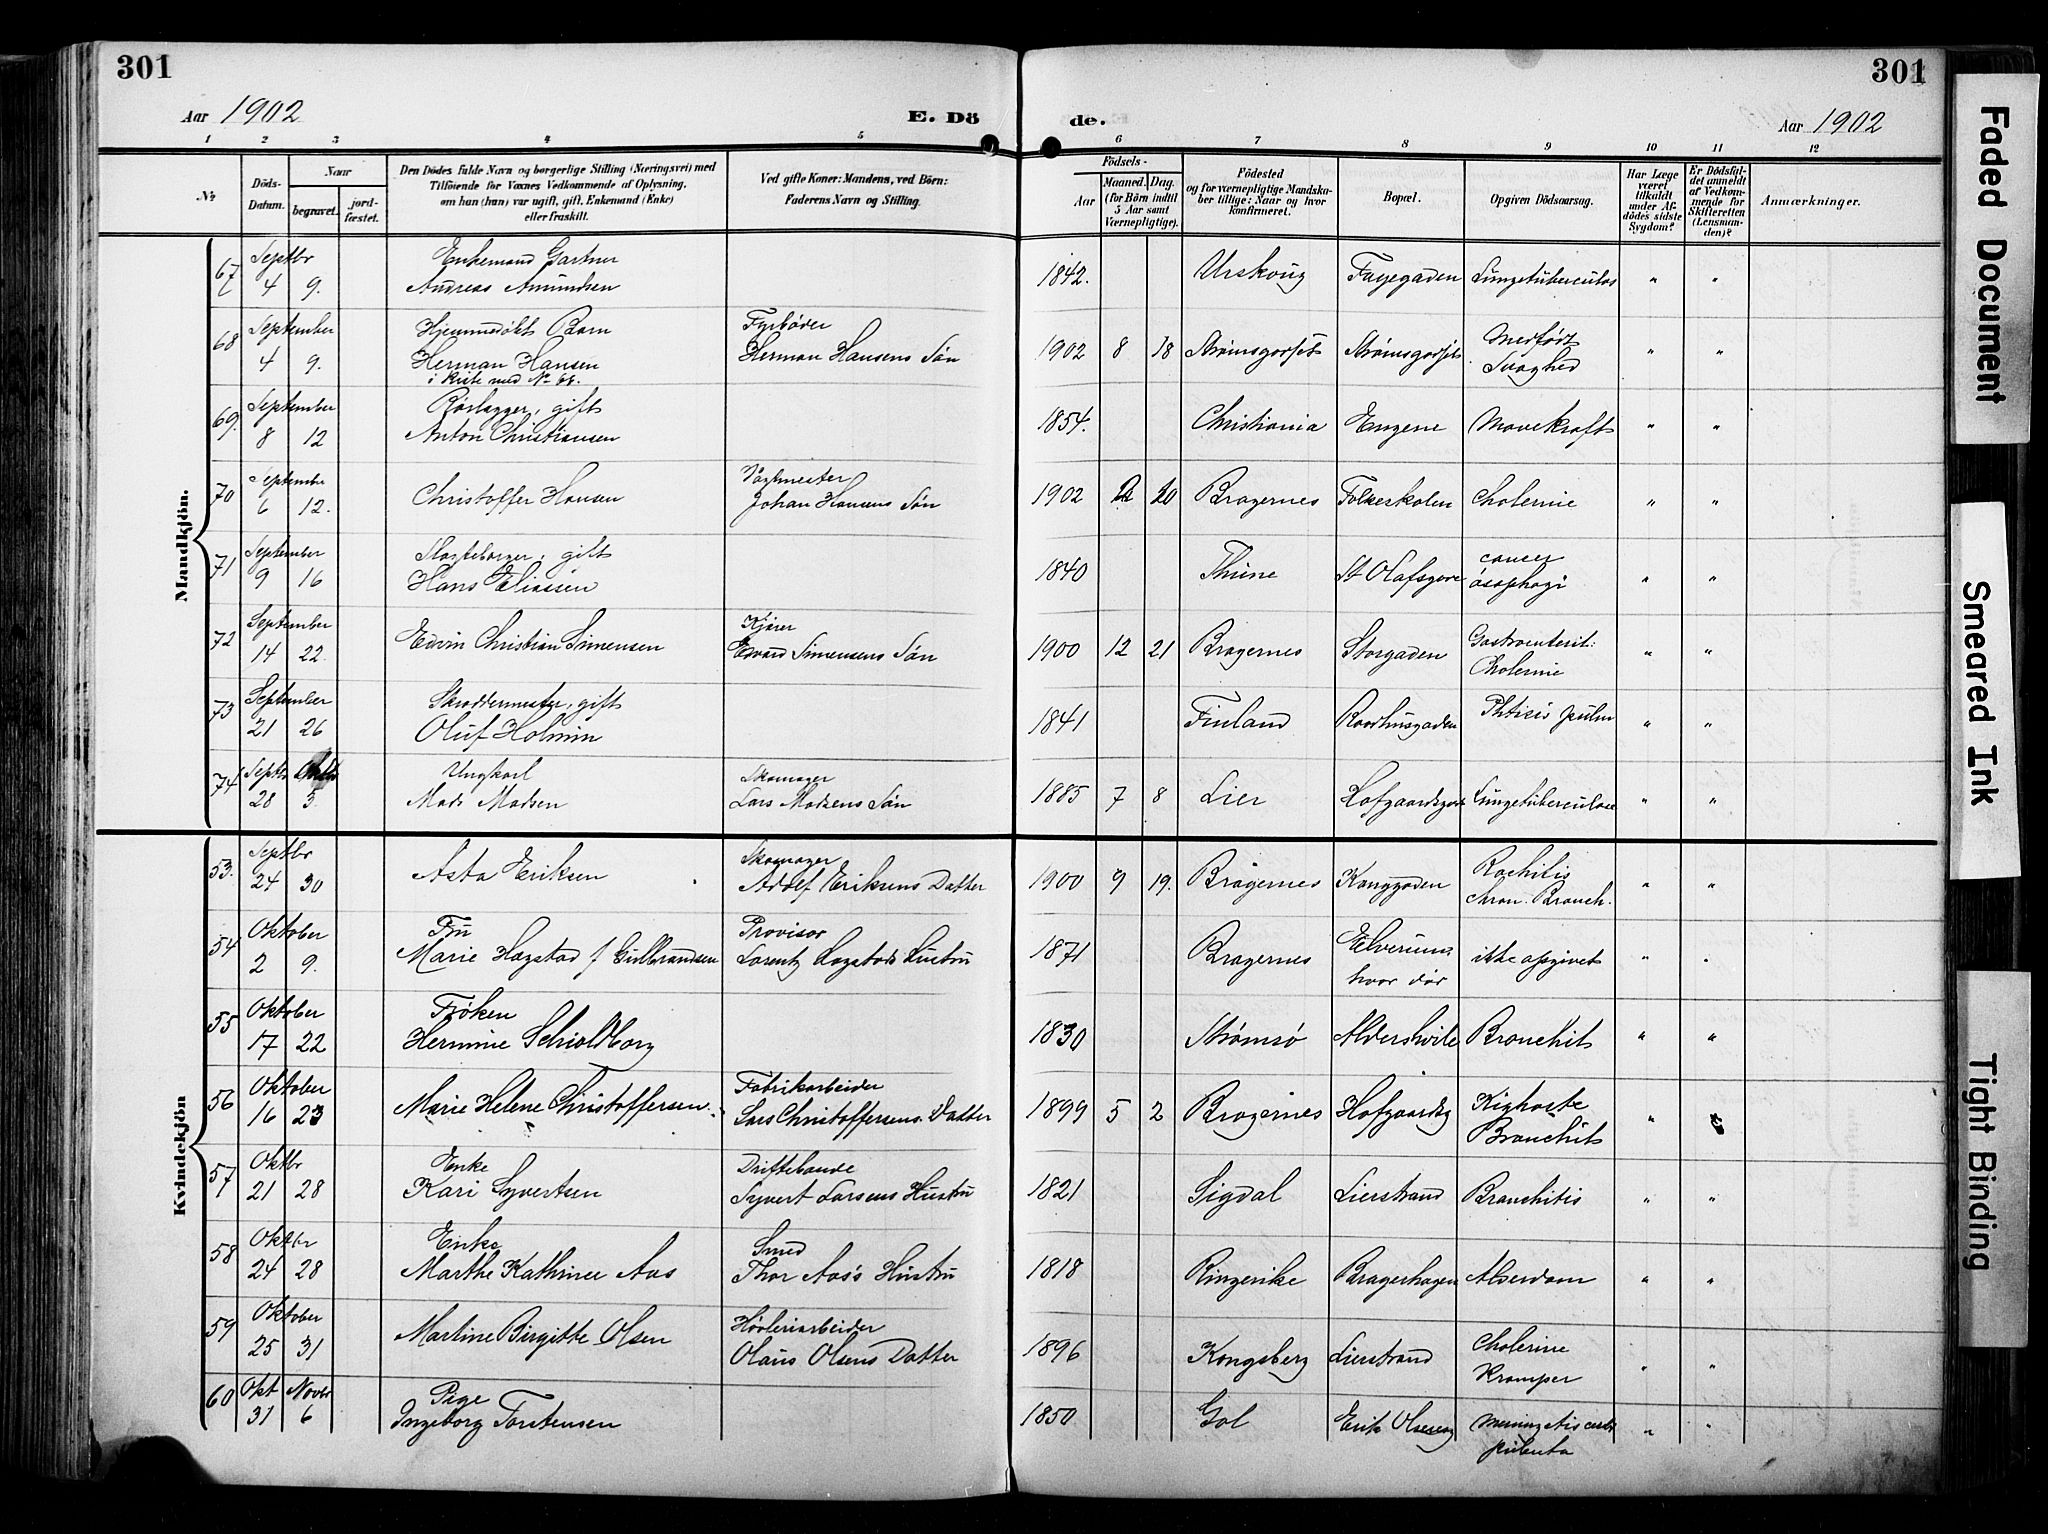 301
301
Aar 1902
E. Dö
de.
Aar 1902
1 2 3 4 5 6 7 8 9 10 11 12
No
Döds-Datum.
Naar
begravet.
jord-fæstet.
Den Dödes fulde Navn og borgerlige Stilling (Næringsvei) med
Tilföiende for Voxnes Vedkommende af Oplysning,
om han (hun) var ugift, gift, Enkemand (Enke)
eller fraskilt.
Ved gifte Koner: Mandens, ved Börn:
Faderens Navn og Stilling.
Födsels-
Aar
Maaned. Dag.
(for Börn indtil
5 Aar samt
Værnepligtige).
Födested
og for værnepligtige Mandska-
ber tillige: Naar og hvor
konfirmeret.
Bopæl.
Opgiven Dödsaarsag.
Har Læge
været
tilkaldt
under Af-
dödes sidste
Sygdom?
Er Dödsfal-
det anmeldt
af Vedkom-
mende for
Skifteretten
(Lensman-
den)?
Anmærkninger.
Mandkjön.
67 Septbr 4 9. Enkemand Gartner
Andreas Amundsen 1842. Urskoug Fayegaden Lungetuberculos " "
68 September 4 9. Hjemmedøbt Barn
Herman Hansen
i kiste med No 66. Fyrbøder
Herman Hansens Søn 1902 8 18 Strømsgodset Strømsgodset Medfødt
Svaghed " "
69. September 8 12 Rørlægger, gift
Anton Christiansen 1854. Christiania Engene Mavekræft " "
70 September 6 12. Christoffer Hansen Vagtmester
Johan Hansens Søn 1902 20 Bragernes Folkeskolen Cholerine " "
71 September 9 16 gift
Hans Eliassen 1840 Thune St Olafsgade cancer
øsophagi " "
72 September 14 22. Edvin Christian Simensen Kjører
Edvard Simensens Søn 1900 12 21 Bragernes Storgaden Gastroenterit:
Cholerine " "
73 September 21 26 Skræddermester, gift
Oluf Holmin 1841 Finland Raadhusgaden Phtisis pulm " "
74 Septbr 28 5. Ungkarl
Mads Madsen Skomager
Lars Madsens Søn 1885 7 8 Lier Hofgaardsgad Lungetuberculose " "
Kvindekjön
53. Septbr 24 30 Asta Eriksen Skomager
Adolf Eriksens Datter 1900 9 19. Bragernes Konggaden Rachitis
chron. Bronch. " "
54 Oktober 2 9. Fru
Marie Hagstad f Gulbrandsen Provisor
Lorentz Hagstads Hustru 1871 Bragernes Elverum
hvor død ikke opgivet " "
55 Oktober 17 22 Frøken
Hermine Schioldborg 1830 Strømsø Aldershvile Bronchit " "
56 Oktober 16 23 Marie Helene Christoffersen Fabrikarbeider
Lars Christoffersens Datter 1899 5 2 Bragernes Hofgaardsg Kighoste
Bronchit "
57 Oktbr 21 28 Enke
Kari Syvertsen Driftebonde
Syvert Larsens Hustru 1821 Sigdal Lierstrand Bronchitis " "
58 Oktbr 24 28 Enke
Marthe Kathrine Aas Smed
Thor Aas's Hustru 1818 Ringerike Bragerhagen Alderdom " "
59 Oktober 25 31 Martine Birgitte Olsen Høvleriarbeider
Olaus Olsens Datter 1896 Kongsberg Lierstrand Cholerine
Kramper " "
60 Okt 31 Novbr 6 Pige
Ingeborg Torstensen 1850 Gol Erik Olseng Meningitis " "
Faded Document
Smeared Ink
Tight Binding